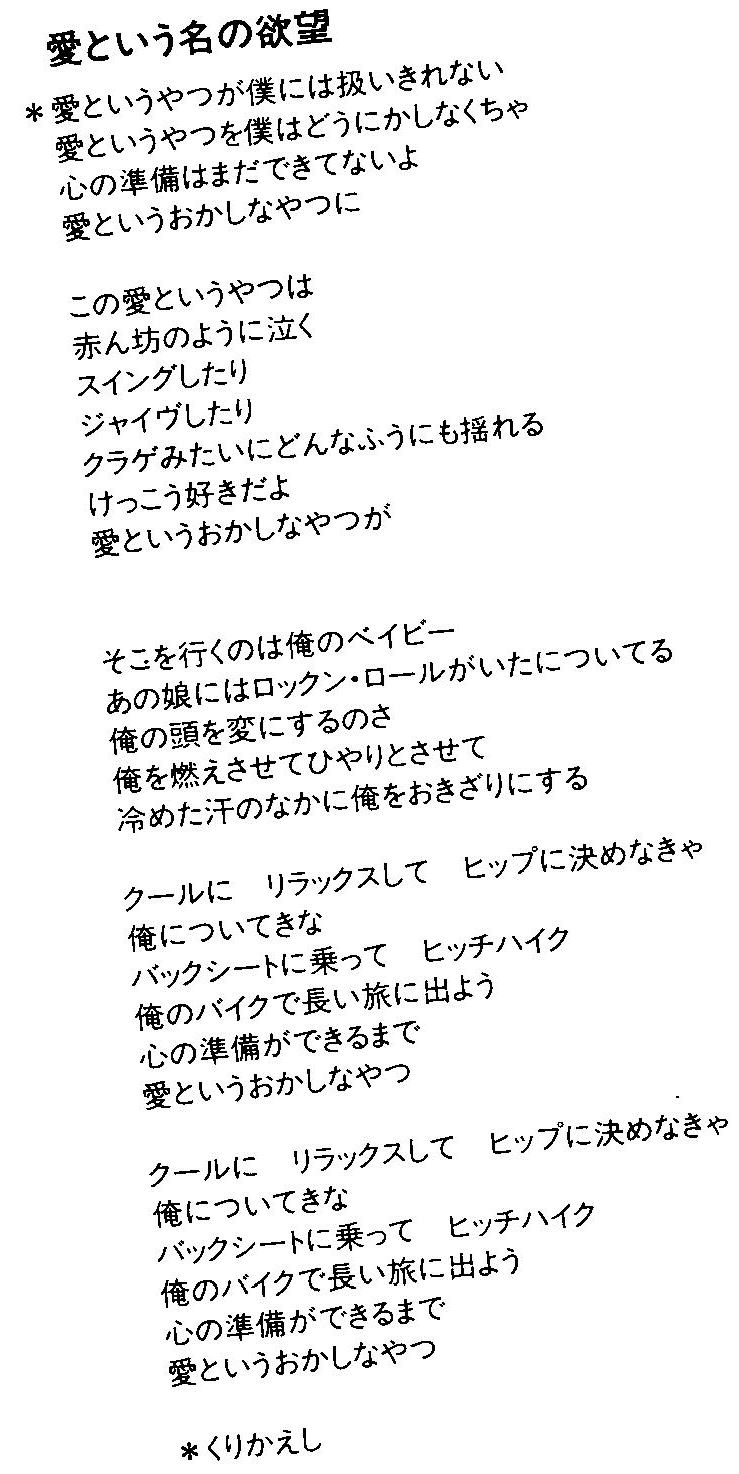 愛という名の欲望
*愛というやつが僕には扱いきれない
愛というやつを僕はどうにかしなくちゃ
心の準備はまだできてないよ
愛というおかしなやつに
この愛というやつは
赤ん坊のように泣く
スイングしたり
ジャイヴしたり
クラゲみたいにどんなふうにも揺れる
けっこう好きだよ
愛というおかしなやつが
そこを行くのは俺のベイビー
あの娘にはロックン・ロールがいたについてる
俺の頭を変にするのさ
俺を燃えさせてひやりとさせて
冷めた汗のなかに俺をおきざりにする
クールに　リラックスして　ヒップに決めなきゃ
俺についてきな
バックシートに乗って　ヒッチハイク
俺のバイクで長い旅に出よう
心の準備ができるまで
愛というおかしなやつ
クールに　リラックスして　ヒップに決めなきゃ
俺についてきな
バックシートに乗って　ヒッチハイク
俺のバイクで長い旅に出よう
心の準備ができるまで
愛というおかしなやつ
*くりかえし